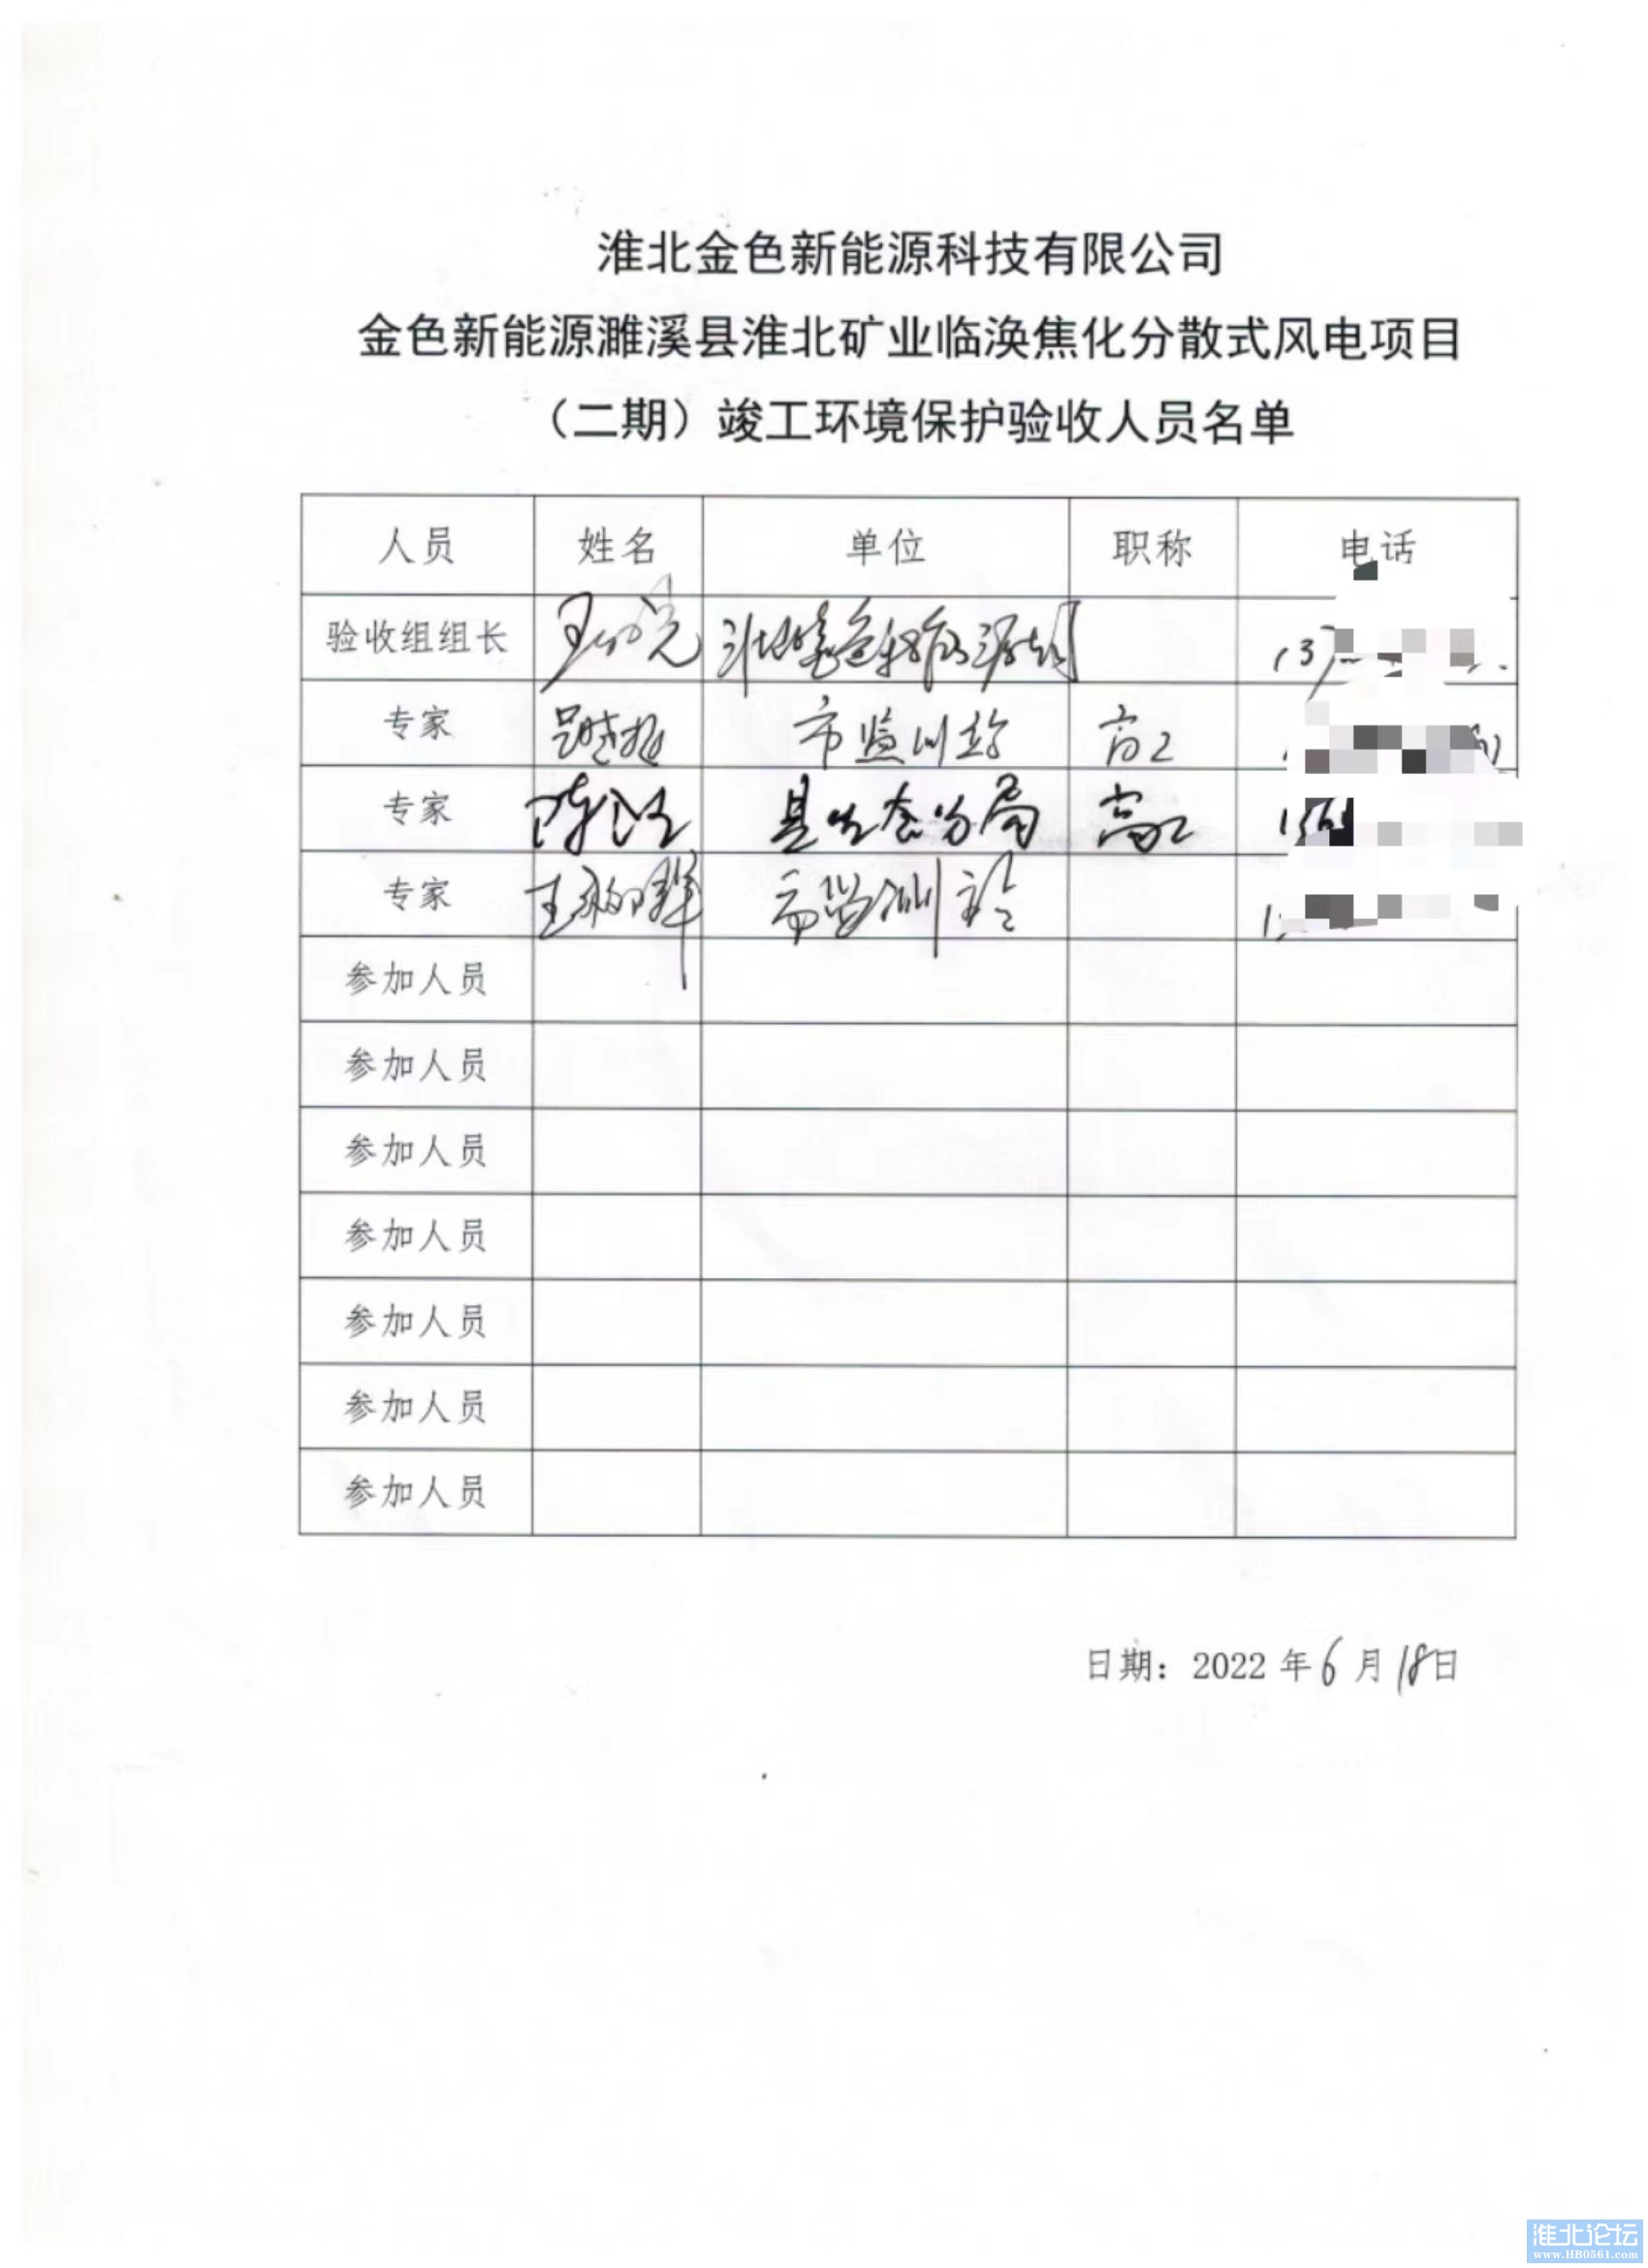 淮北金色新能源科技有限公司
金色新能源濉溪县淮北矿业临涣焦化分散式风电项目
（二期）竣工环境保护验收人员名单
人员 姓名 单位 职称 电话
验收组组长 淮北金色新能源 137
专家 市监测站 高工
专家 陈 县生态分局 高工
专家 王 市监测站
参加人员
参加人员
参加人员
参加人员
参加人员
参加人员
参加人员
日期：2022 年 6 月 18 日
淮北论坛
www.HB0561.com